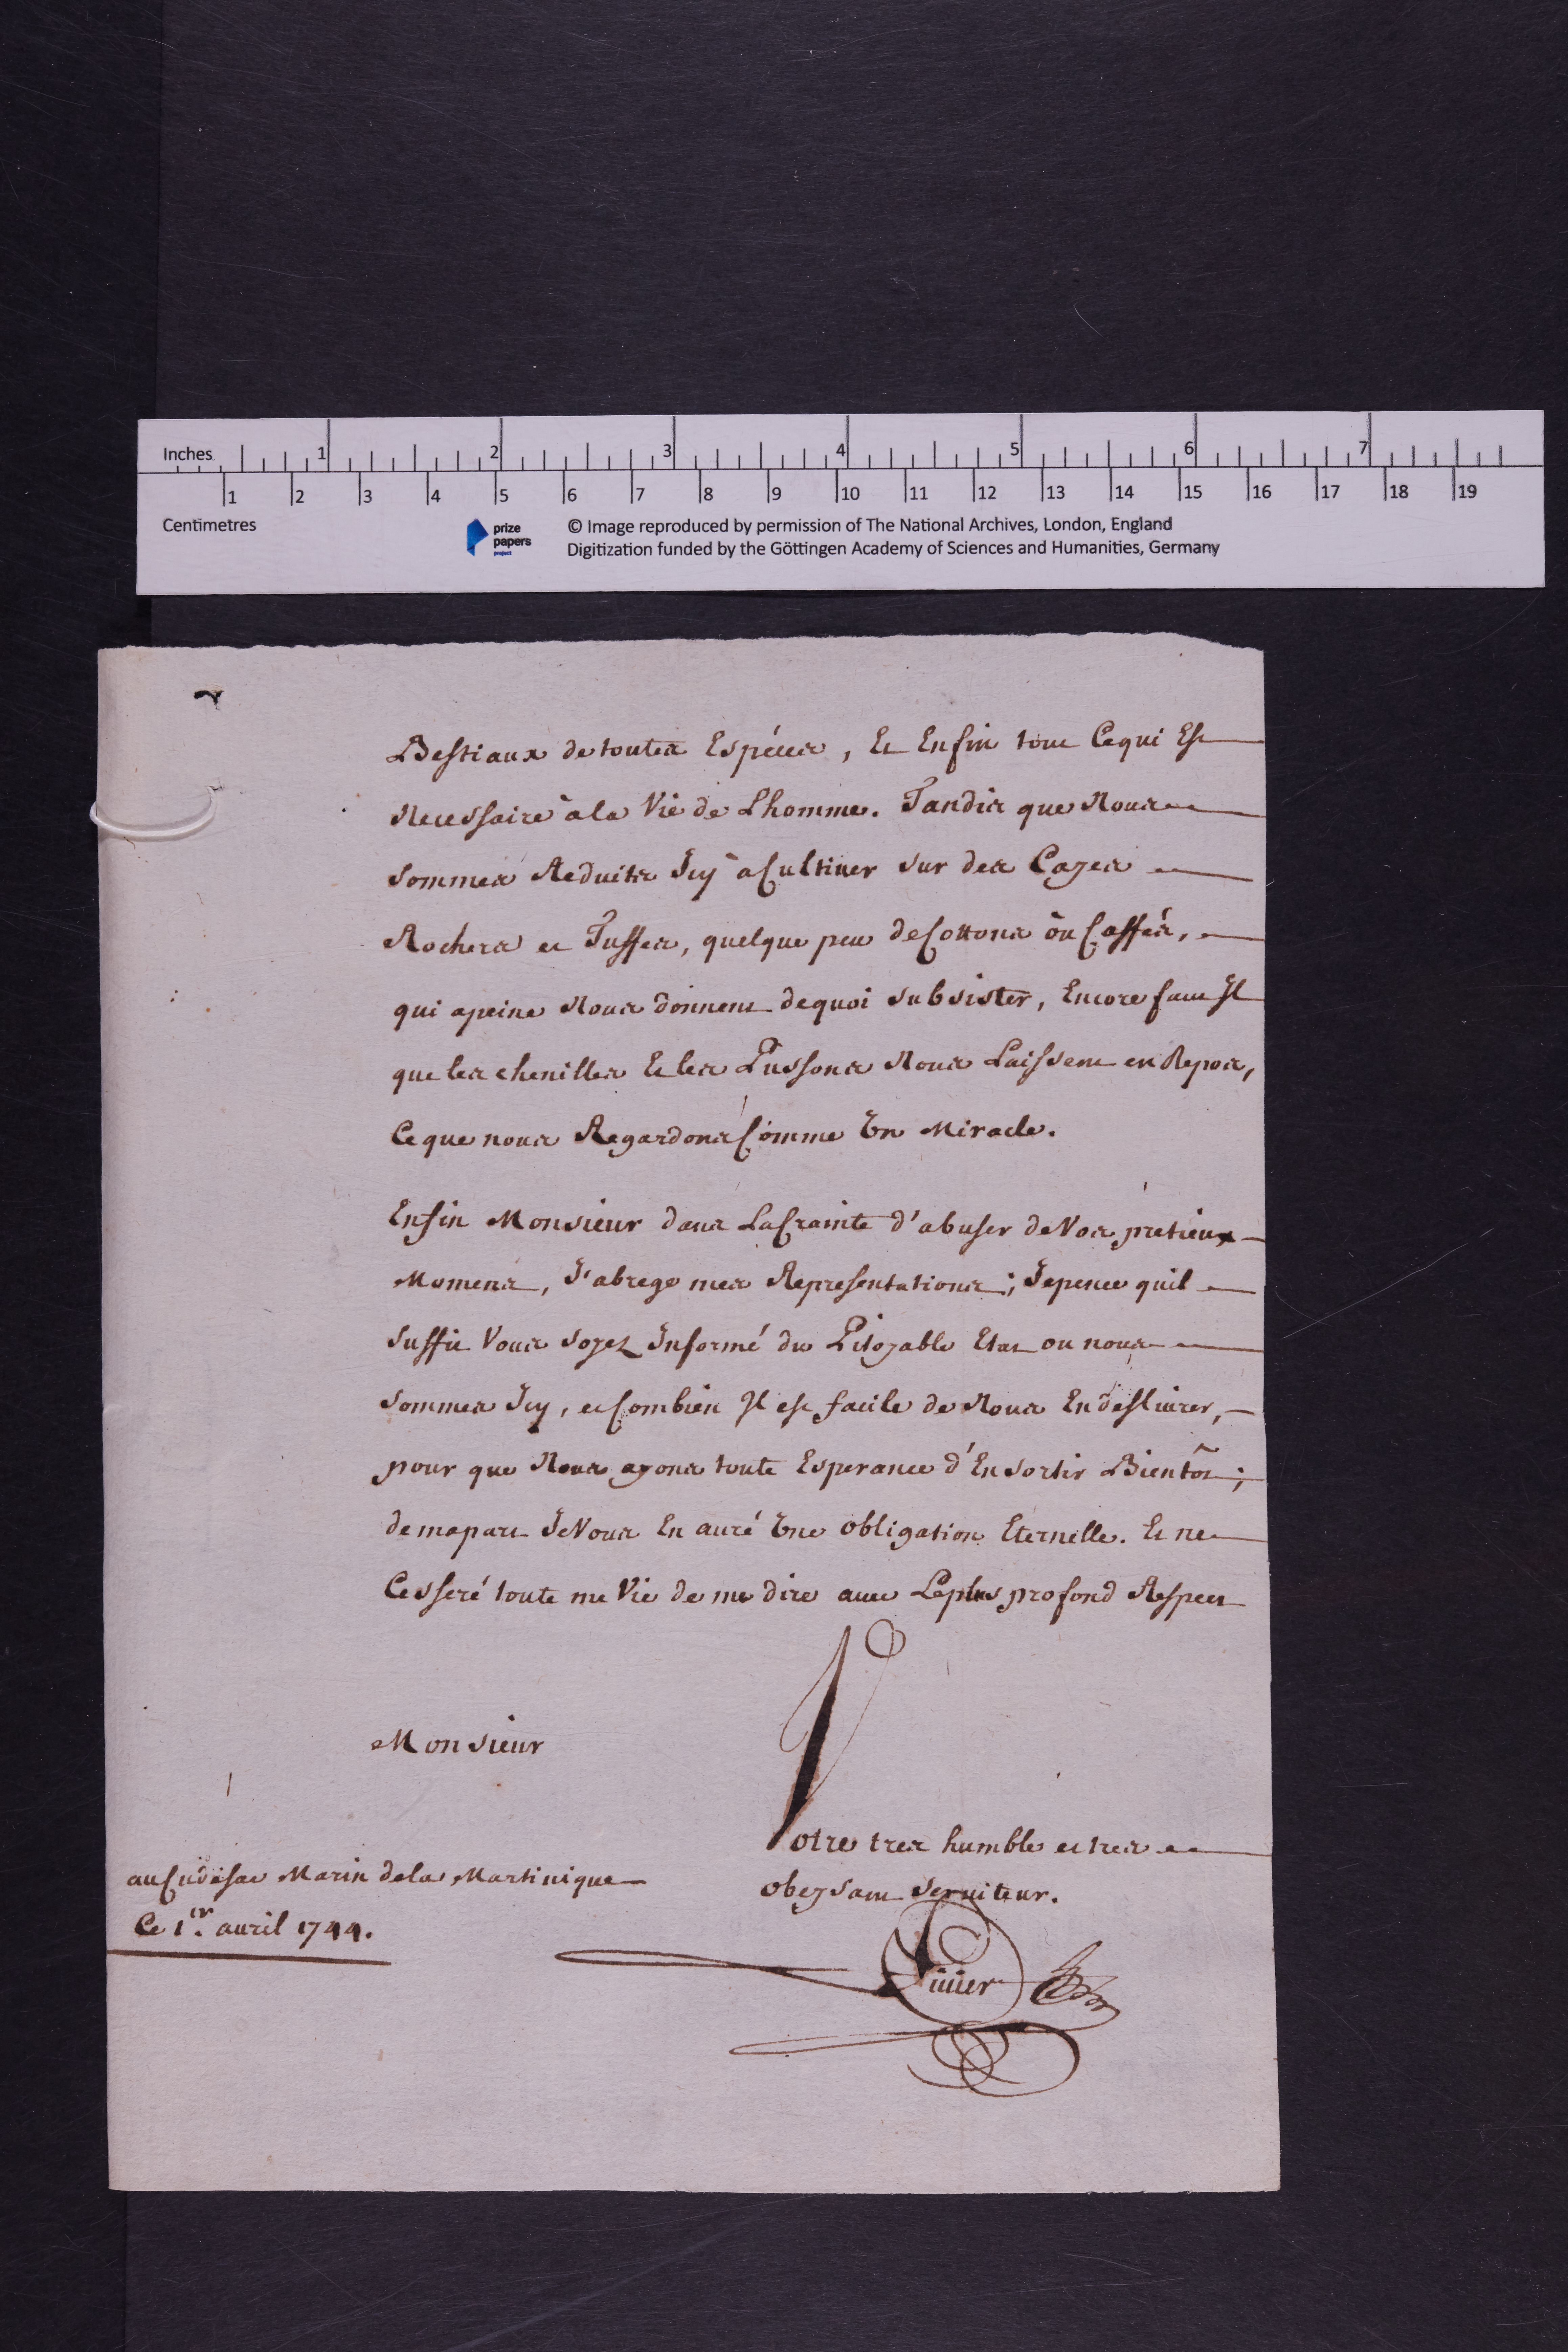 Inches 1 2 3 4 5 6 7
1 2 3 4 5 6 7 8 9 10 11 12 13 14 15 16 17 18 19
Centimetres
prize papers project
© Image reproduced by permission of The National Archives, London, England
Digitization funded by the Göttingen Academy of Sciences and Humanities, Germany
Bestiaux de toutes Espéces, Et Enfin tout Cequi Est
Necessaire àla Vie de Lhomme. Tandis que Nous
sommes Reduits Icy àCultiver sur des Cayes
Rochers et Tuffes, quelque peu deCottons òu Caffés,
qui apeine Nous donnent dequoi subsister, Encore faut Il
que les chenilles Et les Pussons Nous Laissent en Repos,
Ceque nous Regardons Comme Un Miracle.
Enfin Monsieur dans LaCrainte d'abuser deVos prétieux
Momens, J'abrege mes Représentations; Jepence quil
suffit Vous soyez Informé du Pitoyable Etat ou nous
sommes Icy, et Combien Il est facile de Nous En deslivrer,
pour que Nous ayons toute Esperance d'En sortir Bientôt;
demapart JeVous En auré Une obligation Eternelle. Et ne
Cesseré toute me Vie de me dire avec Leplus profond Respect
Monsieur
Votre tres humble et tres
obeysant serviteur.
auCudesac Marin dela Martinique
Ce 1er. avril 1744.